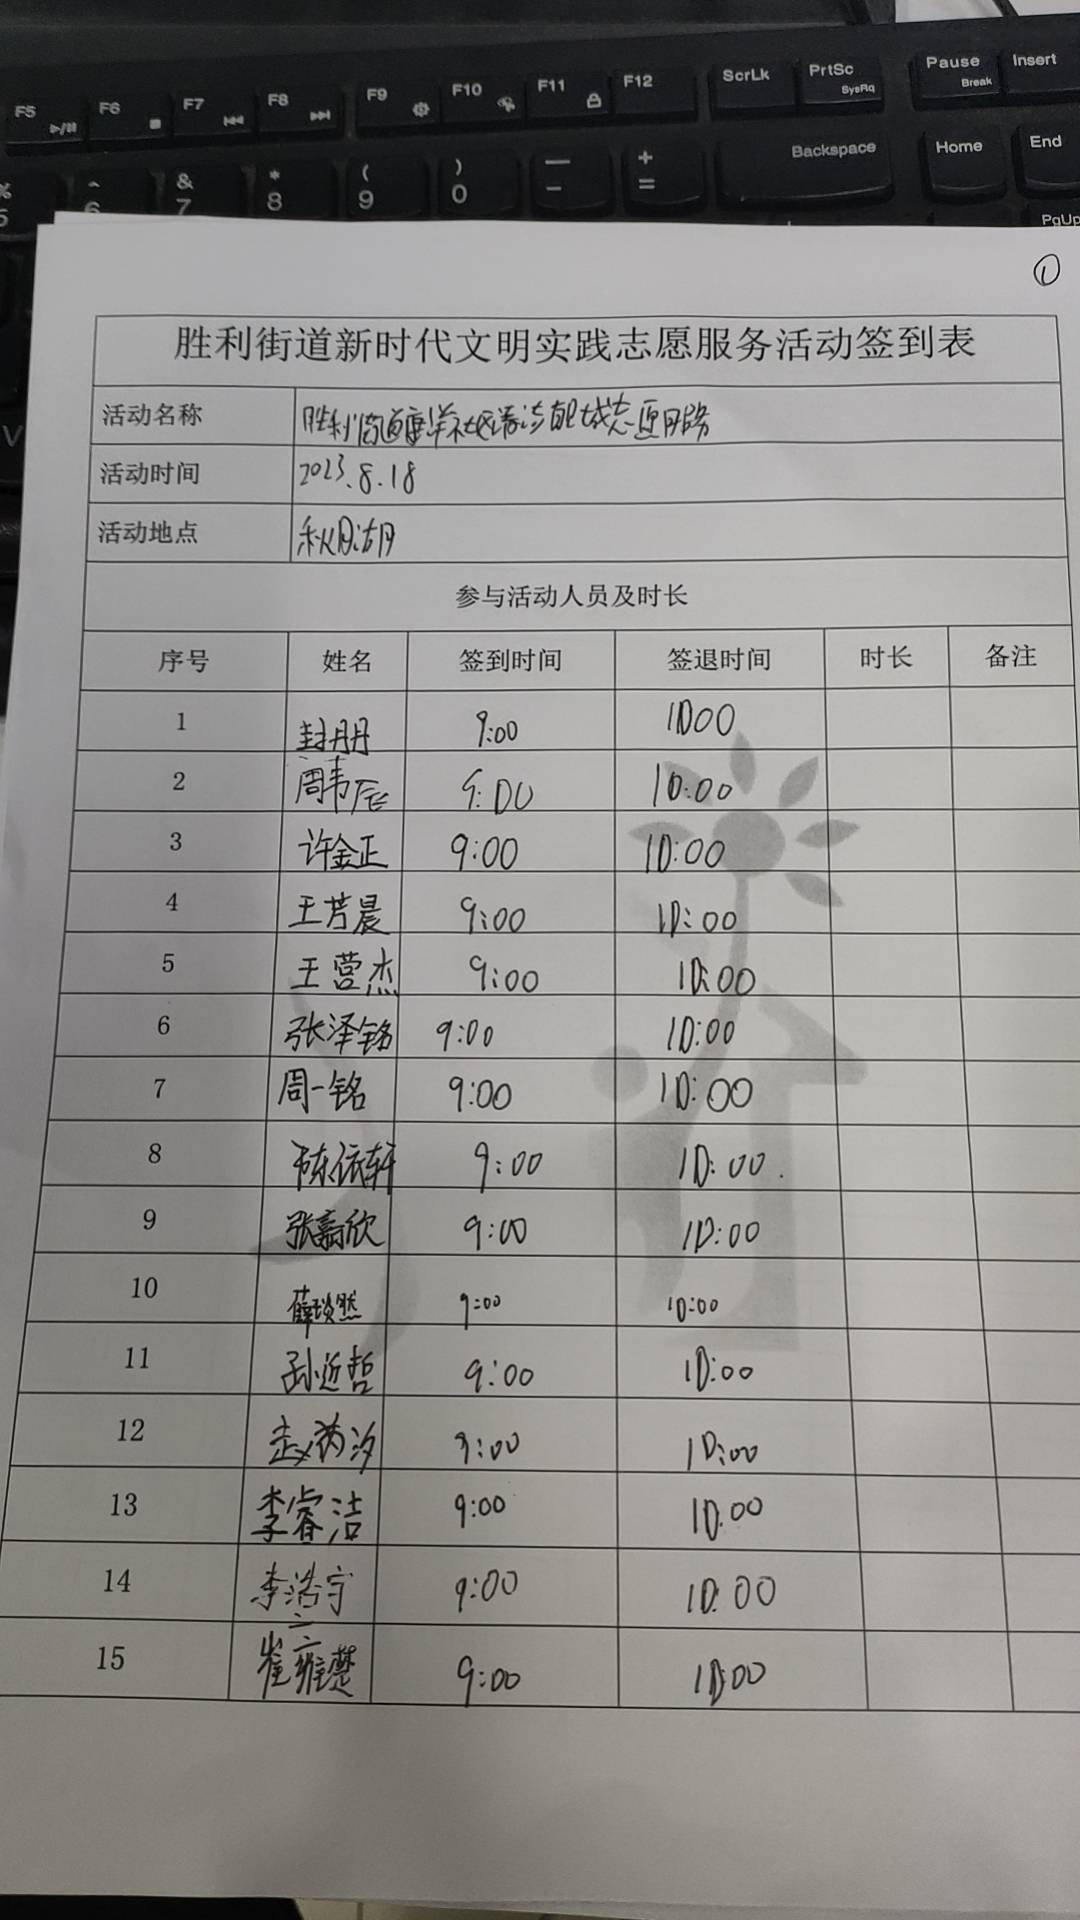 F5 F6 F7 F8 F9 F10 F11 F12 ScrLk PrtSc SysRq Pause Break Insert
% 5 ^ 6 & 7 * 8 ( 9 ) 0 — - + = Backspace Home End
PgUp
①
胜利街道新时代文明实践志愿服务活动签到表
活动名称 胜利街道 志愿服务
活动时间 2023.8.18
活动地点 秋月湖
参与活动人员及时长
序号 姓名 签到时间 签退时间 时长 备注
1 封丹丹 9:00 10:00
2 周韦辰 9:00 10:00
3 许金正 9:00 10:00
4 王芳晨 9:00 10:00
5 王营杰 9:00 10:00
6 张泽铭 9:00 10:00
7 周一铭 9:00 10:00
8 陈依轩 9:00 10:00
9 张嘉欣 9:00 10:00
10 薛琰然 9:00 10:00
11 孙近哲 9:00 10:00
12 赵芮汐 9:00 10:00
13 李睿洁 9:00 10:00
14 李浩宇 9:00 10:00
15 崔雍楚 9:00 10:00